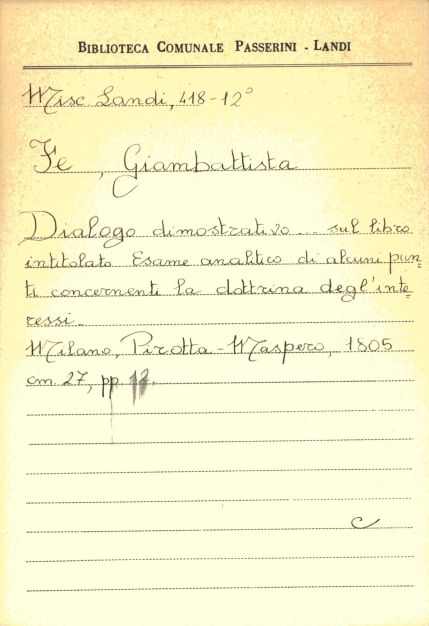 BIBLIOTECA COMUNALE PASSERINI - LANDI
Misc Landi, 418-12°
Fe, Giambattista
Dialogo dimostrativo ... sul libro
intitolato Esame analitico di alcuni pun=
ti concernenti la dottrina degl'inte=
ressi.
Milano, Pirotta-Maspero, 1805
cm. 27, pp.
C